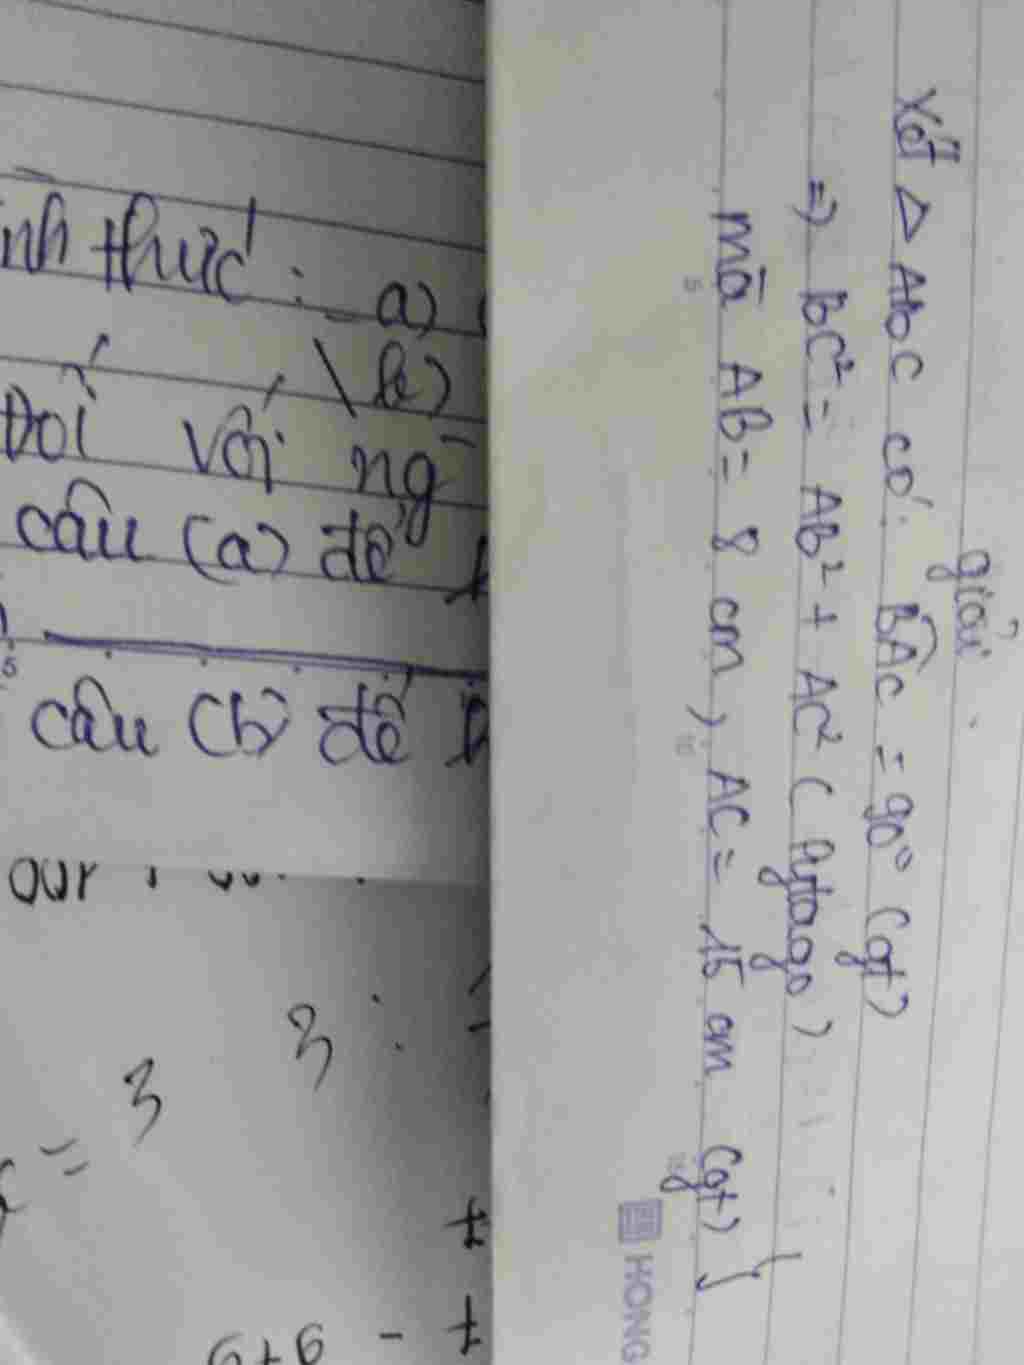 giải
Xét Δ ABC có: BAC = 90° (gt)
=> BC² = AB² + AC² ( Pytago )
mà AB = 8 cm , AC = 15 cm (gt) }
HONG
thức : a)
b)
Đối với
câu (a) để
5
câu (b) để
our
3 :
= 3
+
- +
9+9